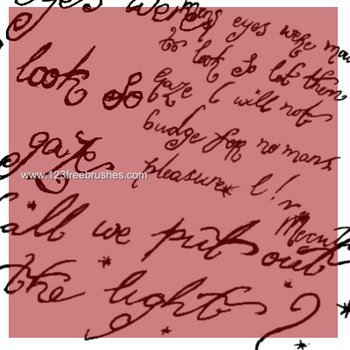 eyes were
mens eyes were ma
to look so let them
look so
gaze I will not
budge for no mans
gaze
pleasure I!
www.123freebrushes.com
Mercu
all we put out
the light ?